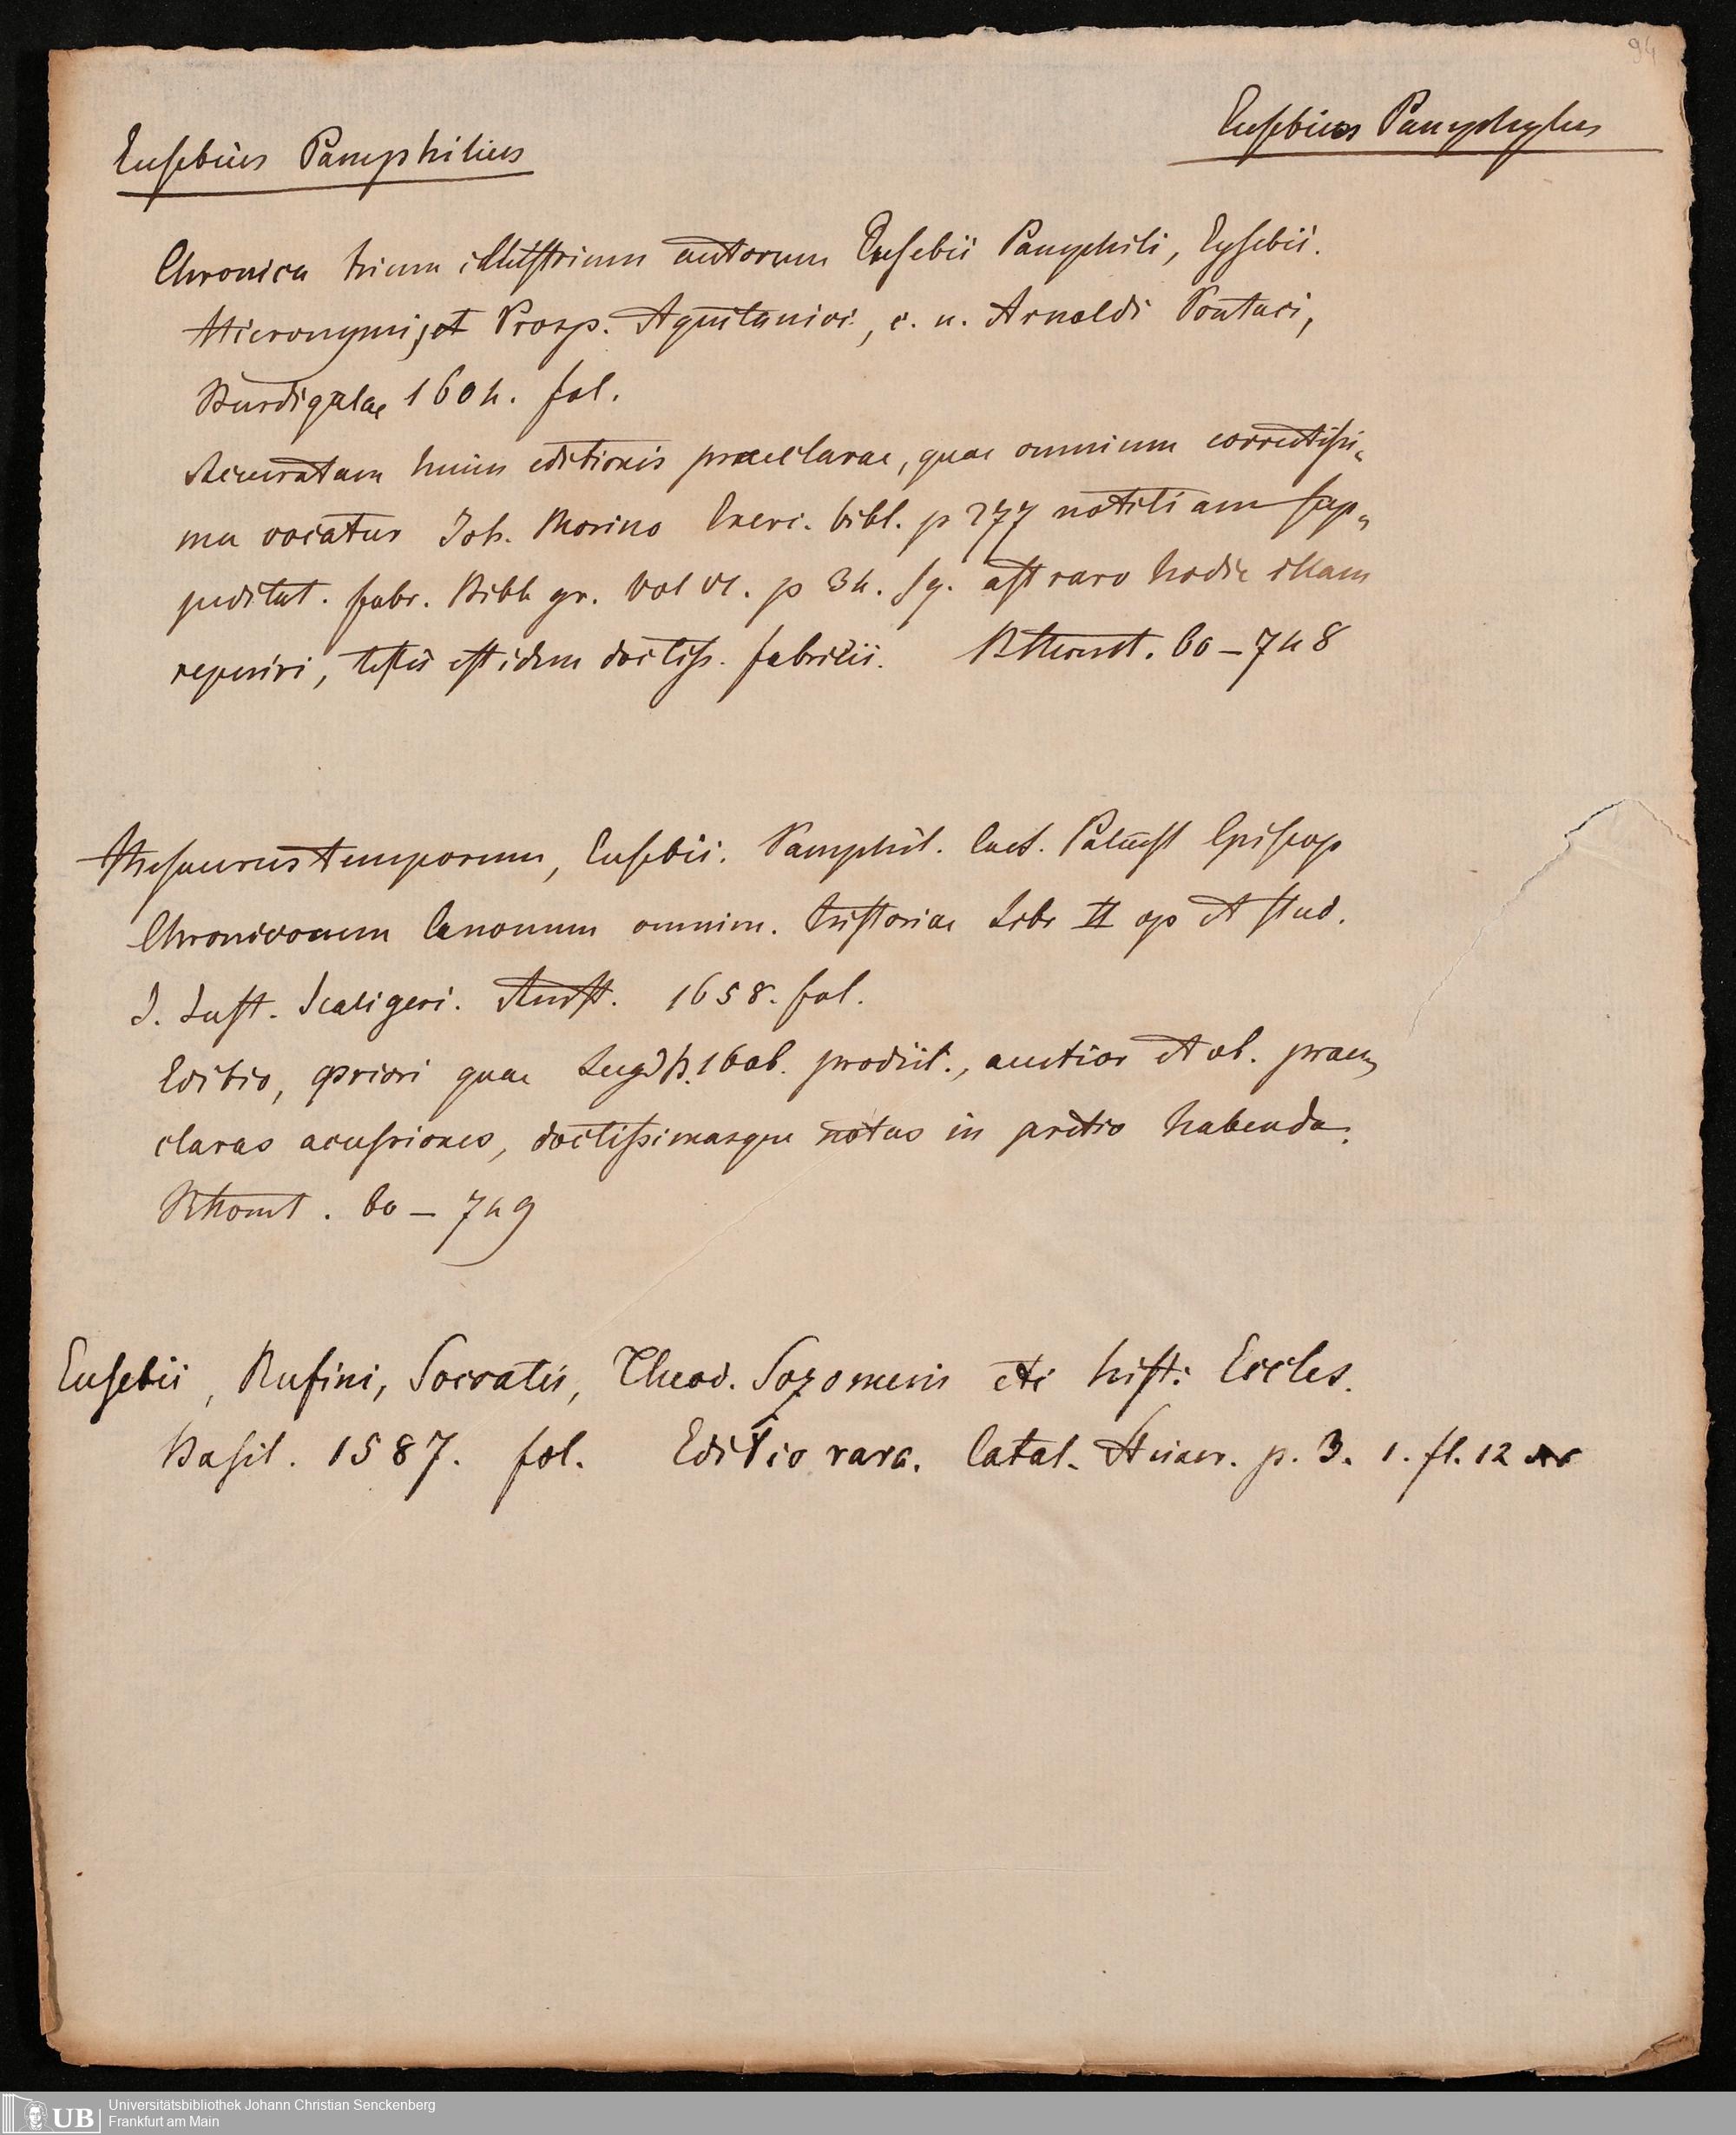 94
Eusebius Pamphilius
Eusebius Pamphylus
Chronica trium illustrium autorum Eusebii Pamphili, Eysebii.
Hieronymi, et Prosp. Aquitanici, c. n. Arnaldi Pontaci,
Burdigalae 1604. fol.
Accuratam huius editionis praeclarae, quae omnium correctissi-
ma vocatur Joh. Morino Exerc. bibl. p 277 notitiam sup-
peditat. Fabr. Bibl. gr. Vol VI. p 34. sq. ast raro hodie illam
reperiri, testis est idem doctiss. Fabricii. 60-748
Thesaurus temporum, Eusebii. Pamphil. Caes. Palaest Episcop
Chronicorum Canonum omnim. historiae Libr II op et stud.
J. Just. Scaligeri. Amst. 1658. fol.
Editio, priori quae Lugd B. 1606. prodiit., auctior et ob. prae-
claras accessiones, doctissimasque notas in pretio habenda.
60-749
Eusebii, Rufini, Socratis, Theod. Sozomenis etc hist: Eccles.
Basil. 1587. fol. Editio rara. Catal. p. 3. 1. fl. 12
UB
Universitätsbibliothek Johann Christian Senckenberg
Frankfurt am Main